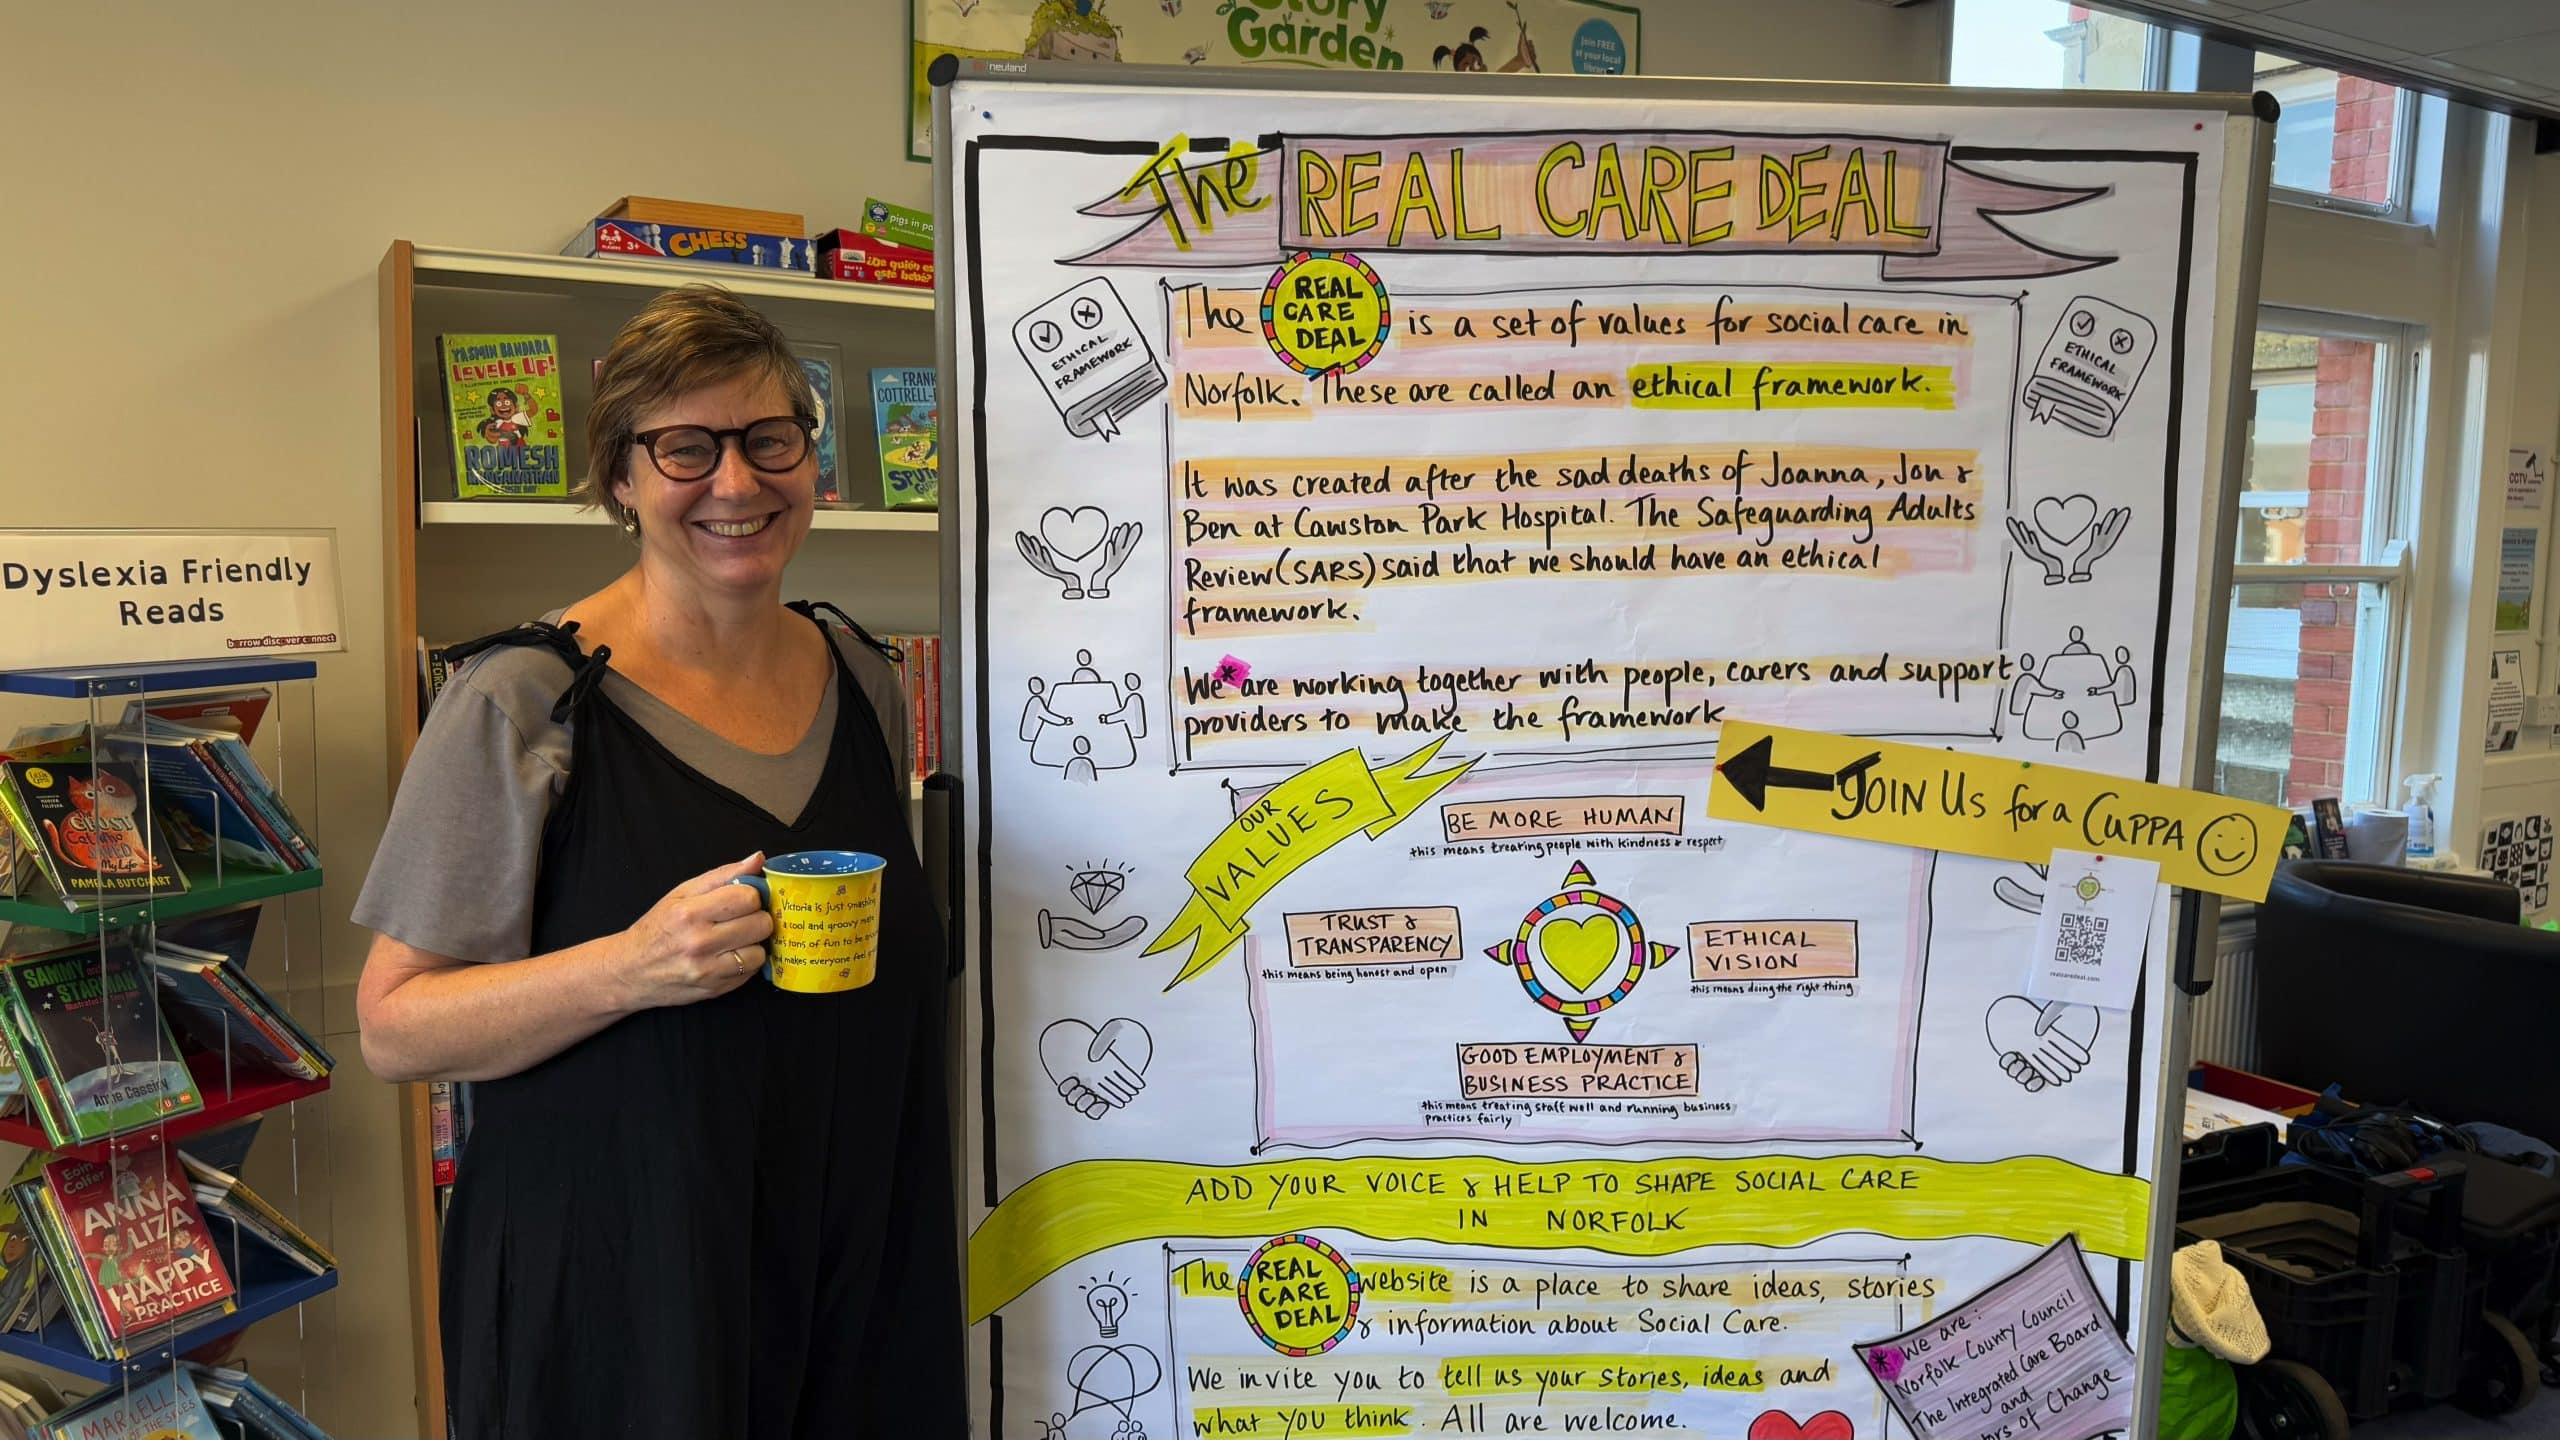 Story
Garden
Join FREE
at your local
library
neuland
CHESS
3+
pigs in pa
¿De quién es
este bebé?
YASMIN BANDARA
Levels Up!
ROMESH
RANGANATHAN
FRANK
COTTRELL-
Dyslexia Friendly
Reads
borrow discover connect
The Ghost
Cat who
SAVED
My Life
PAMELA BUTCHART
SAMMY and the
STARMAN
Anne Cassidy
Eoin
Colfer
ANNA
LIZA
and
the
HAPPY
PRACTICE
MARCELLA
Victoria is just smashing
a cool and groovy mate
tons of fun to be
makes everyone feel
The REAL CARE DEAL
ETHICAL
FRAMEWORK
The REAL CARE DEAL is a set of values for social care in
Norfolk. These are called an ethical framework.
ETHICAL
FRAMEWORK
It was created after the sad deaths of Joanna, Jon &
Ben at Cawston Park Hospital. The Safeguarding Adults
Review (SARS) said that we should have an ethical
framework.
We* are working together with people, carers and support
providers to make the framework
JOIN US for a CUPPA
OUR
VALUES
BE MORE HUMAN
this means treating people with kindness & respect
TRUST &
TRANSPARENCY
this means being honest and open
ETHICAL
VISION
this means doing the right thing
realcaredeal.com
GOOD EMPLOYMENT &
BUSINESS PRACTICE
this means treating staff well and running business
practices fairly
ADD YOUR VOICE & HELP TO SHAPE SOCIAL CARE
IN NORFOLK
The REAL CARE DEAL website is a place to share ideas, stories
& information about Social Care.
We invite you to tell us your stories, ideas and
what you think. All are welcome.
* We are:
Norfolk County Council
The Integrated Care Board
and
of Change
CCTV